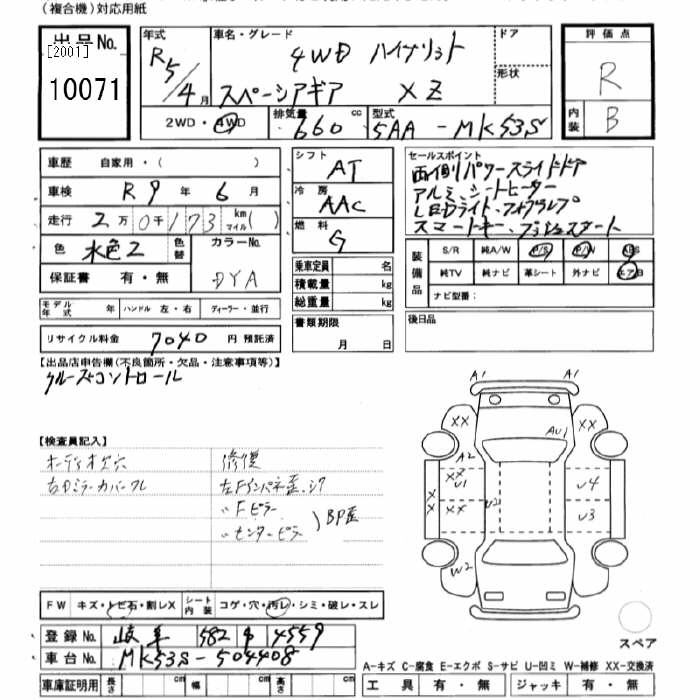 (複合機)対応用紙
出品No.
[2001]
10071
年式
R5/4月
車名・グレード
4WD ハイブリット
スペーシアギア XZ
ドア
形状
2WD・4WD
排気量 660 cc
型式 5AA-MK53S
評価点
R
内装 B
車歴 自家用・( )
車検 R9年 6月
走行 2万0千173 km マイル( )
色 水色2 色替
カラーNo. DYA
保証書 有・無
シフト AT
冷房 AAC
燃料 G
乗車定員 名
積載量 kg
総重量 kg
セールスポイント
両側パワースライドドア
アルミ、シートヒーター
LEDライト、フォグランプ
スマートキー、プッシュスタート
装備品
S/R 純A/W P/S P/W ABS
純TV 純ナビ 革シート 外ナビ エアB
ナビ型番:
モデル年式 年 ハンドル 左・右 ディーラー・並行
リサイクル料金 7040 円 預託済
書類期限 月 日
後日品
【出品店申告欄(不良箇所・欠品・注意事項等)】
クルーズコントロール
【検査員記入】
オーディオ欠穴
右Dミラーカバーフレ
修復
左Fインパネ歪、シワ
〃Fピラー
〃センターピラー
)BP歪
A1 A1
XX XX
AU1
A2
XX
U1
XX
XX
U2
U4
U3
W2
FW キズ・トビ石・割レX
シート内装 コゲ・穴・汚レ・シミ・破レ・スレ
登録No. 岐阜 582 4559
車台No. MK53S-504408
車庫証明用 長さ cm 幅 cm 高さ cm
スペア
A-キズ C-腐食 E-エクボ S-サビ U-凹ミ W-補修 XX-交換済
工具 有・無 ジャッキ 有・無